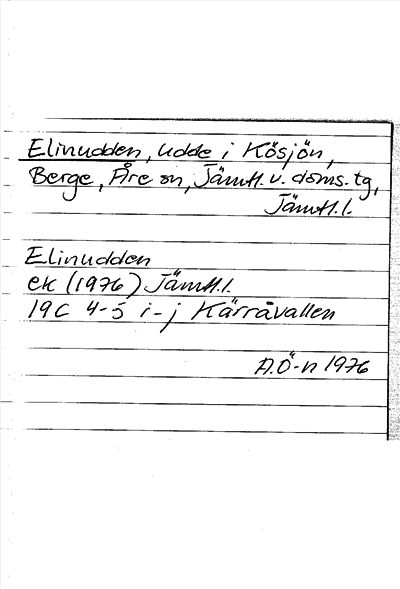 Elinudden, udde i Kösjön,
Berge, Åre sn, Jämtl. v. doms. tg,
Jämtl. l.
Elinudden
ek (1976) Jämtl. l.
19C 4-5 i-j Kärråvallen
A.Ö-n 1976